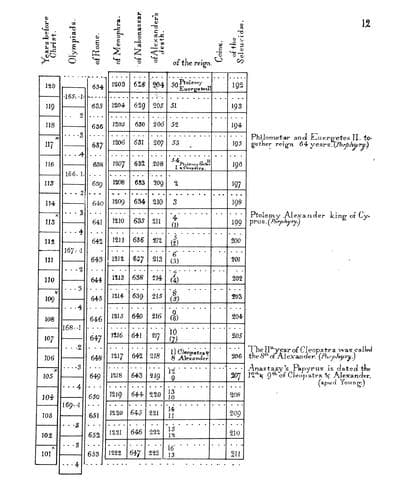 12
Years before Christ.
Olympiads.
of Rome.
of Menophra.
of Nabonassar.
of Alexander's death.
of the reign.
Coins.
of the Seleucidae.
120 634 1203 628 204 50 Ptolemy Euergetes II 192
165.-1
119 635 1204 629 205 51 193
2
118 636 1205 630 206 52 194
3
117 637 1206 631 207 53 195 Philometor and Euergetes II. together reign 64 years. (Porphyry.)
4
116 638 1207 632 208 54 196
166.-1
115 639 1208 633 209 2 197
2
114 640 1209 634 210 3 198
3
113 641 1210 635 211 4 (1) 199 Ptolemy Alexander king of Cyprus. (Porphyry.)
4
112 642 1211 636 212 5 (2) 200
167.-1
111 643 1212 637 213 6 (3) 201
2
110 644 1213 638 214 7 (4) 202
3
109 645 1214 639 215 8 (5) 203
4
108 646 1215 640 216 9 (6) 204
168.-1
107 647 1216 641 217 10 (7) 205
2
106 648 1217 642 218 11 Cleopatra & 8 Alexander 206 The 11th year of Cleopatra was called the 8th of Alexander. (Porphyry.)
3
105 649 1218 643 219 12 9 207 Anastasy's Papyrus is dated the 12th & 9th of Cleopatra & Alexander. (apud Young)
4
104 650 1219 644 220 13 10 208
169.-1
103 651 1220 645 221 14 11 209
2
102 652 1221 646 222 15 12 210
3
101 653 1222 647 223 16 13 211
4